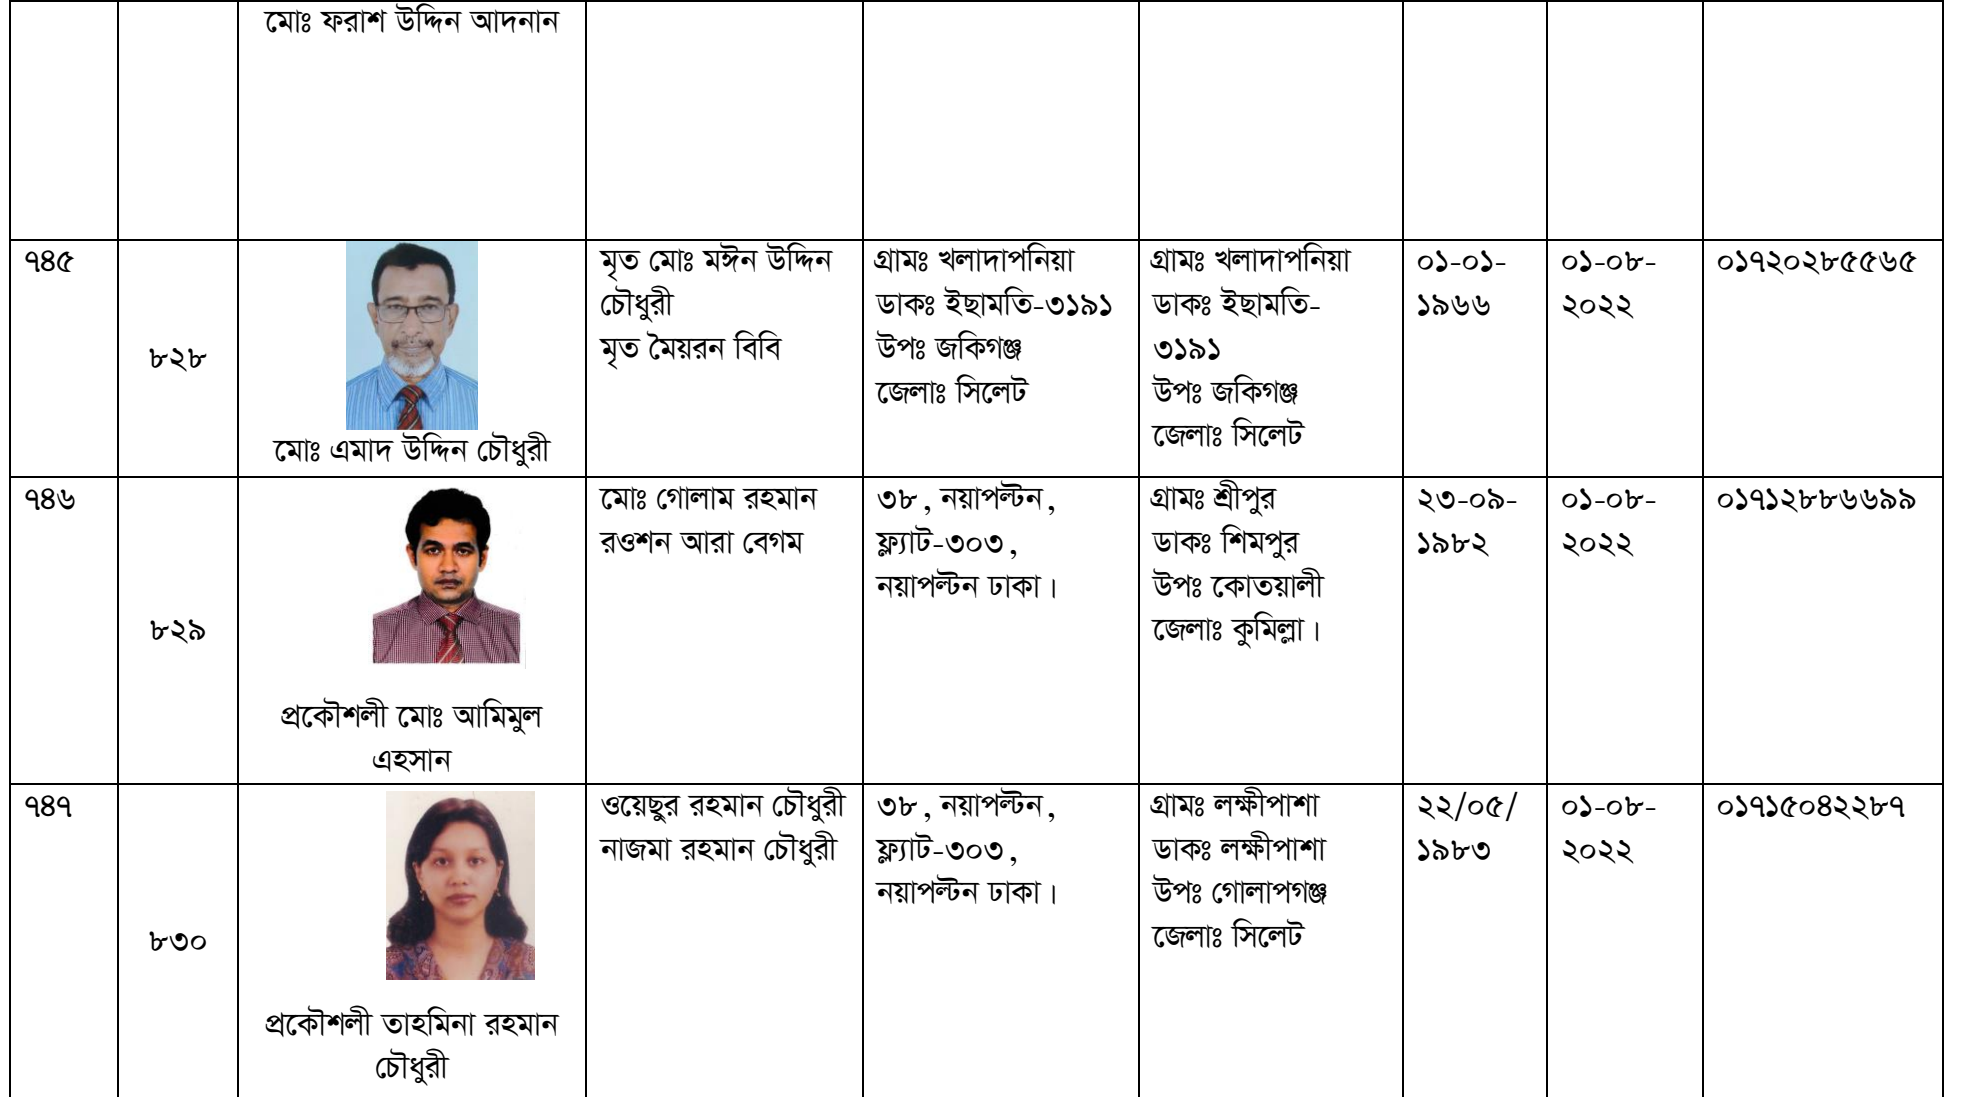 মোঃ ফরাশ উদ্দিন আদনান
৭৪৫
৮২৮
মোঃ এমাদ উদ্দিন চৌধুরী
মৃত মোঃ মঈন উদ্দিন
চৌধুরী
মৃত মৈয়রন বিবি
গ্রামঃ খলাদাপনিয়া
ডাকঃ ইছামতি-৩১৯১
উপঃ জকিগঞ্জ
জেলাঃ সিলেট
গ্রামঃ খলাদাপনিয়া
ডাকঃ ইছামতি-
৩১৯১
উপঃ জকিগঞ্জ
জেলাঃ সিলেট
০১-০১-
১৯৬৬
০১-০৮-
২০২২
০১৭২০২৮৫৫৬৫
৭৪৬
৮২৯
প্রকৌশলী মোঃ আমিমুল
এহসান
মোঃ গোলাম রহমান
রওশন আরা বেগম
৩৮, নয়াপল্টন,
ফ্ল্যাট-৩০৩,
নয়াপল্টন ঢাকা।
গ্রামঃ শ্রীপুর
ডাকঃ শিমপুর
উপঃ কোতয়ালী
জেলাঃ কুমিল্লা।
২৩-০৯-
১৯৮২
০১-০৮-
২০২২
০১৭১২৮৮৬৬৯৯
৭৪৭
৮৩০
প্রকৌশলী তাহমিনা রহমান
চৌধুরী
ওয়েছুর রহমান চৌধুরী
নাজমা রহমান চৌধুরী
৩৮, নয়াপল্টন,
ফ্ল্যাট-৩০৩,
নয়াপল্টন ঢাকা।
গ্রামঃ লক্ষীপাশা
ডাকঃ লক্ষীপাশা
উপঃ গোলাপগঞ্জ
জেলাঃ সিলেট
২২/০৫/
১৯৮৩
০১-০৮-
২০২২
০১৭১৫০৪২২৮৭